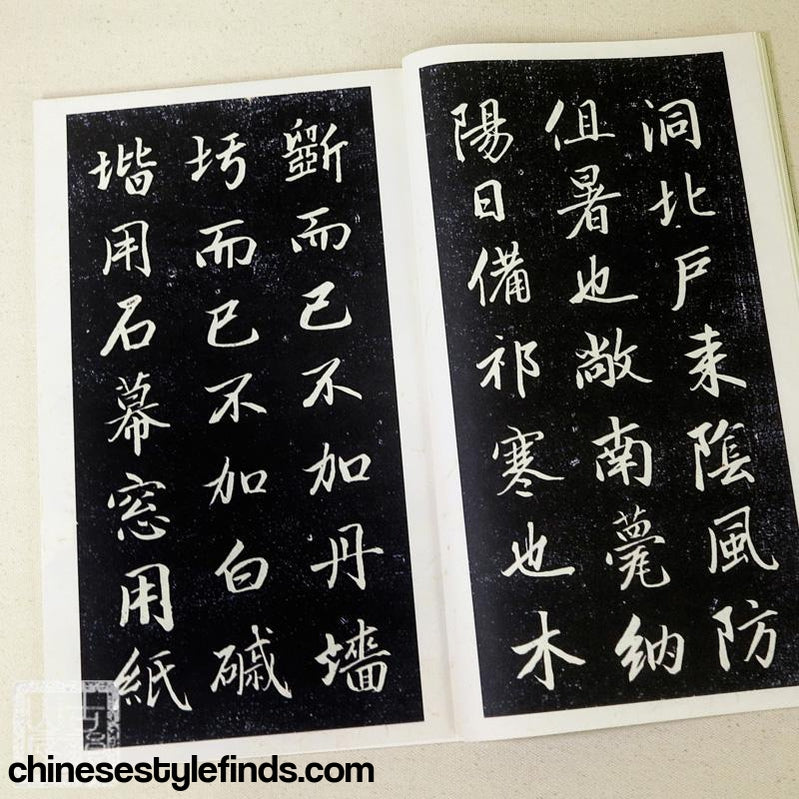 洞北戶来陰風防
徂暑也敞南甍納
陽日備祁寒也木
斵而已不加丹墻
圬而已不加白磩
堦用石幕窓用紙
chinesestylefinds.com